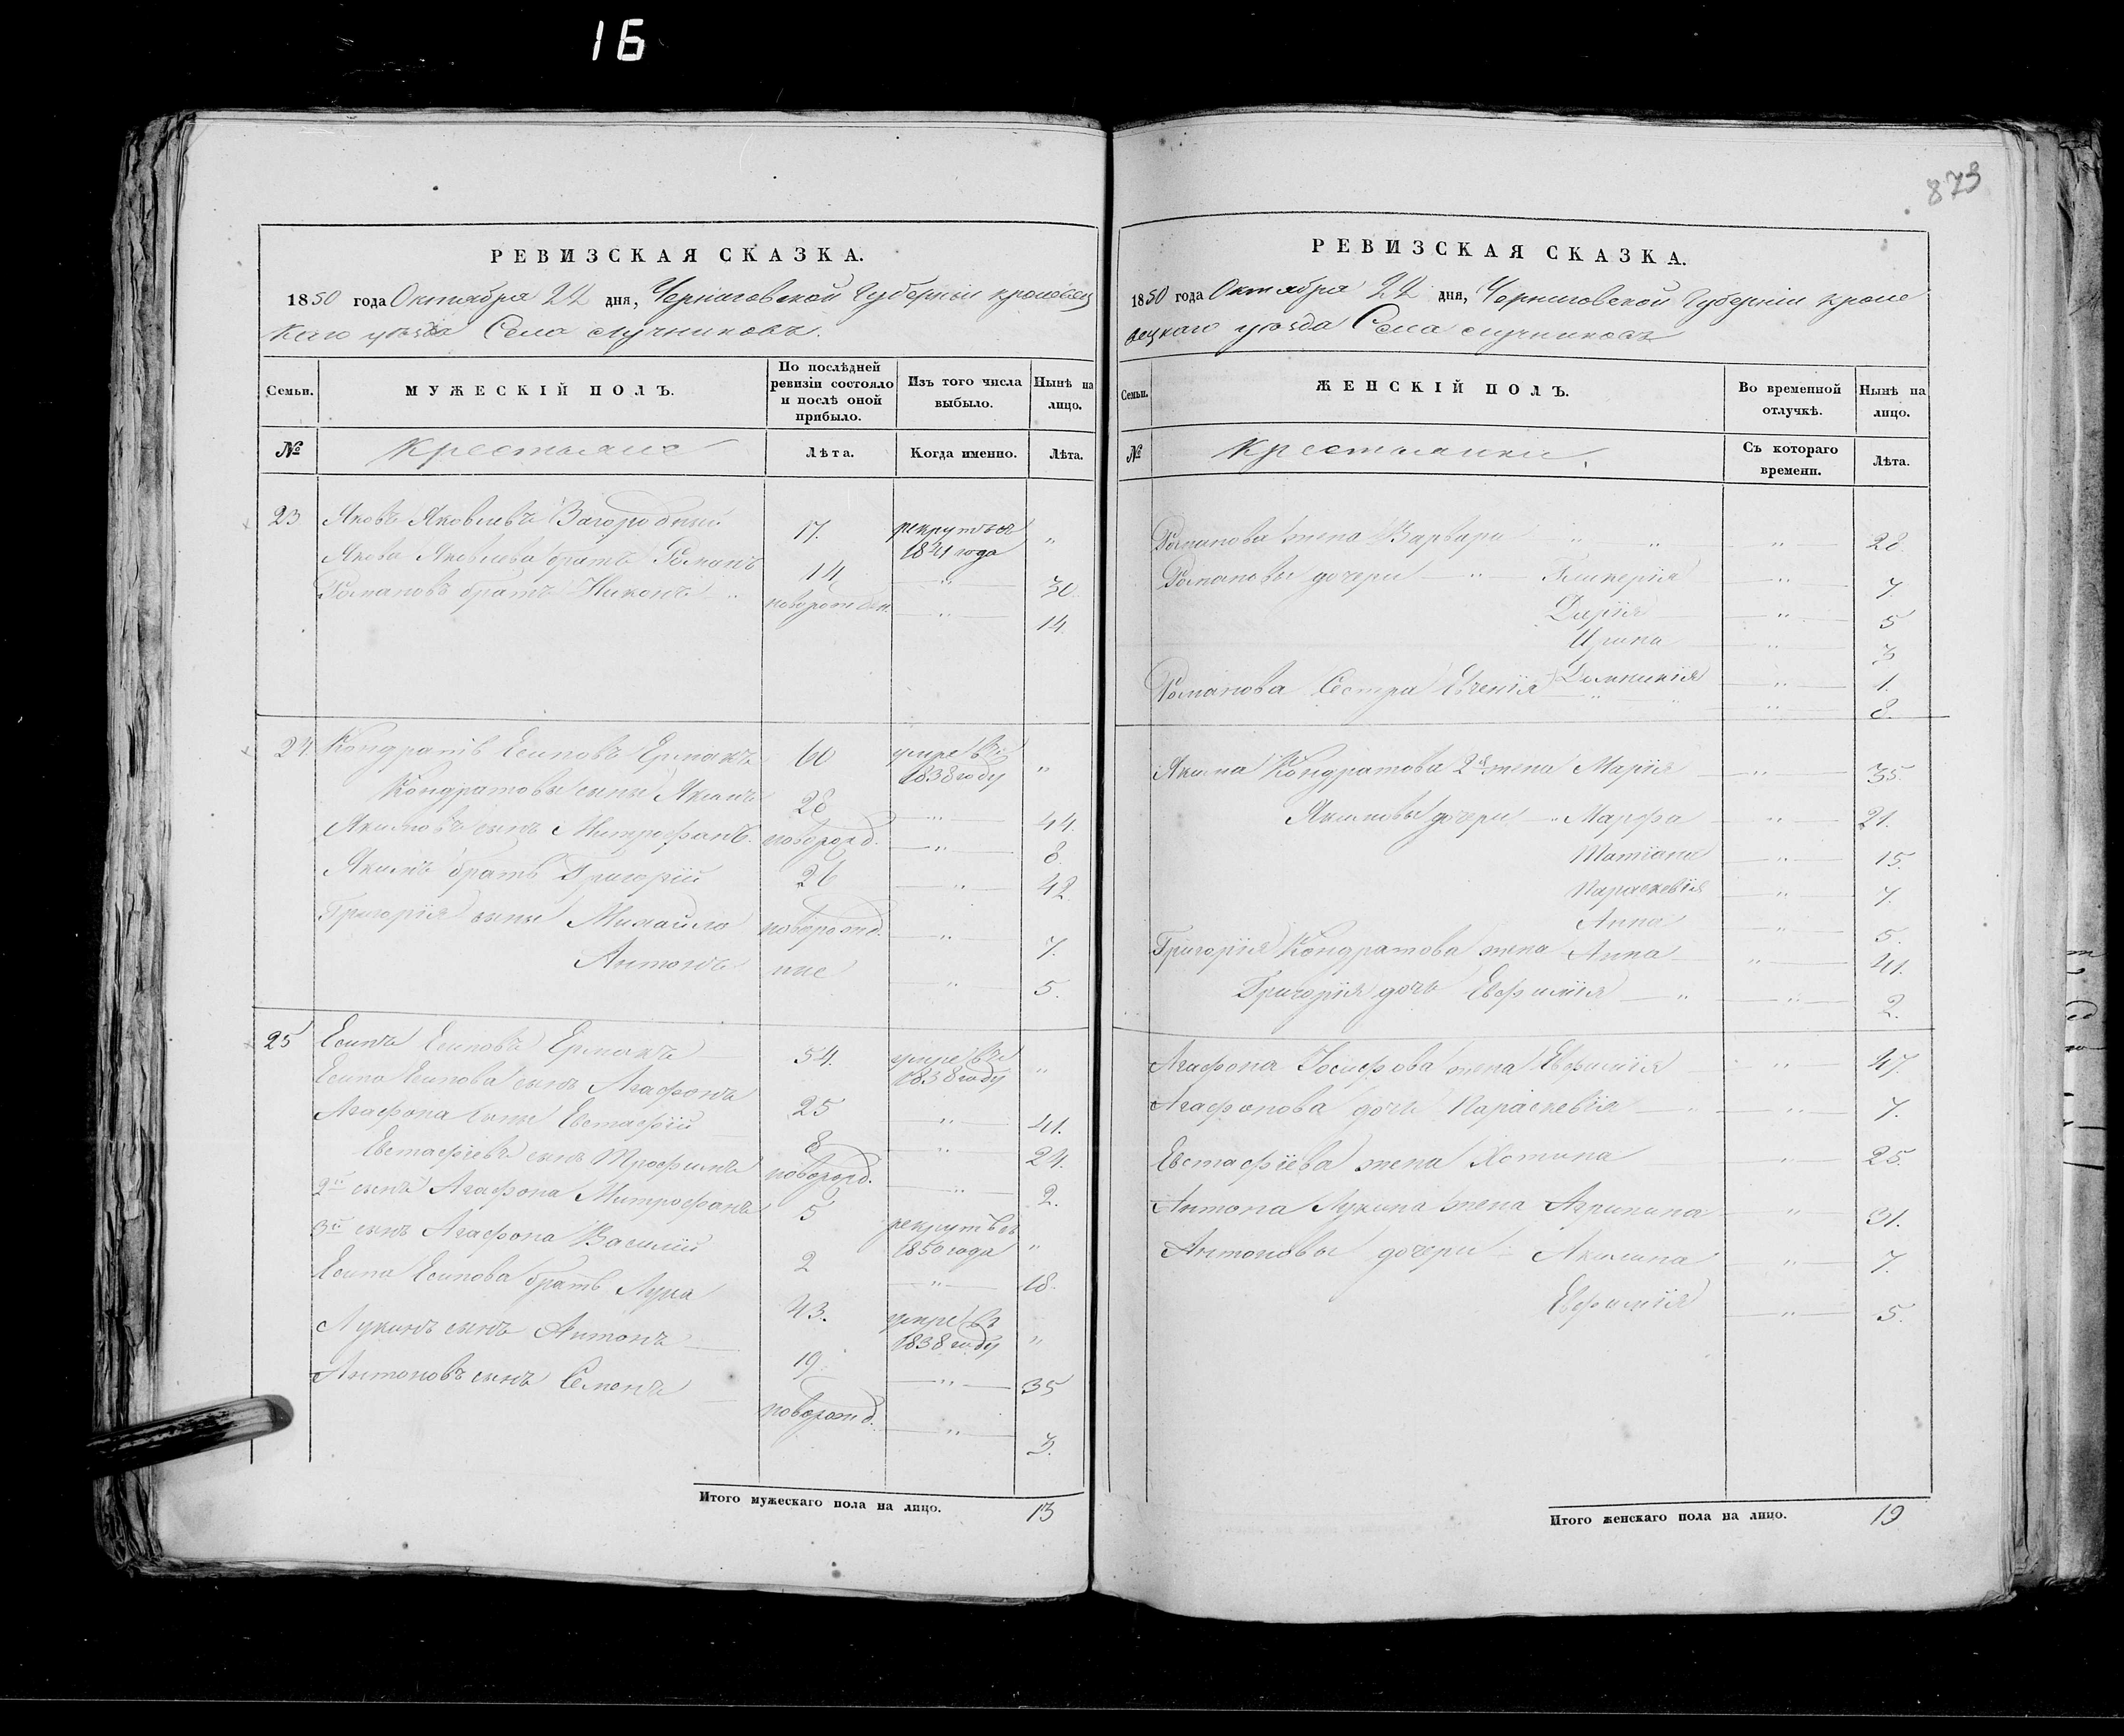 16
873
РЕВИЗСКАЯ СКАЗКА.
1850 года Октября 22 дня, Черниговской Губерніи кролевец
каго уѣзда Села
Семьи.
МУЖЕСКІЙ ПОЛЪ.
По послѣдней ревизіи состояло и послѣ оной прибыло.
Изъ того числа выбыло.
Нынѣ на лицо.
№
Крестьяне
Лѣта.
Когда именно.
Лѣта.
23 Яковъ Яковлевъ Загородний 17. рекрутъ 1841 года "
Якова Яковлева братъ Романъ 14 " 30
Романовъ братъ Никонъ " новорожден. " 14.
24 Кондратъ Есиповъ Ермакъ 60 умре въ 1838 году "
Кондратовы сыны Якимъ 28 " 44.
Якимовъ сынъ Митрофанъ.новорожд. " 8.
Якимъ братъ Григорій 26 " 42
Григорія сыны Михайло новорожд. " 7.
Антонъ ние " 5.
25 Есипъ Есиповъ Ермакъ 54. умре въ 1838 году "
Есипа Есипова сынъ Агафонъ 25 " 41.
Агафона сыны Евстафій 8 " 24.
Евстафіевъ сынъ Трофимъ новорожд. " 2.
2й сынъ Агафона Митрофанъ 5 рекрутъ 1850 года "
3й сынъ Агафона Василій 2 " 18.
Есипа Есипова братъ Лука 43. умре въ 1838 году "
Лукинъ сынъ Антонъ 19 " 35
Антоновъ сынъ Семенъ новорожд. " 3.
Итого мужескаго пола на лицо. 13
РЕВИЗСКАЯ СКАЗКА.
1850 года Октября 22 дня, Черниговской Губерніи кроле
вецкаго уѣзда Села
Семьи.
ЖЕНСКІЙ ПОЛЪ.
Во временной отлучкѣ.
Нынѣ на лицо.
№
Крестьянки.
Съ котораго времени.
Лѣта.
Романова жена Варвара " " " 28.
Романовы дочери " Гликерія " 7.
Дарія " 5
Ирина " 3
Домникія " 1.
Романова Сестра Евгенія " " 8.
Якима Кондратова 2я жена Марія " 35.
Якимовы дочери " Марфа " 21.
Татіана " 15.
Параскевія " 7.
Анна " 5.
Григорія Кондратова жена Анна " 41.
Григорія дочь Евфимія " " 2.
Агафона Іосифова жена Евфимія " 47.
Агафонова дочь Параскевія " " 7.
Евстафіева жена Устина " 25.
Антона Лукина жена Агрипина " 31.
Антоновы дочери Акилина " 7.
Евфимія " 5.
Итого женскаго пола на лицо. 19